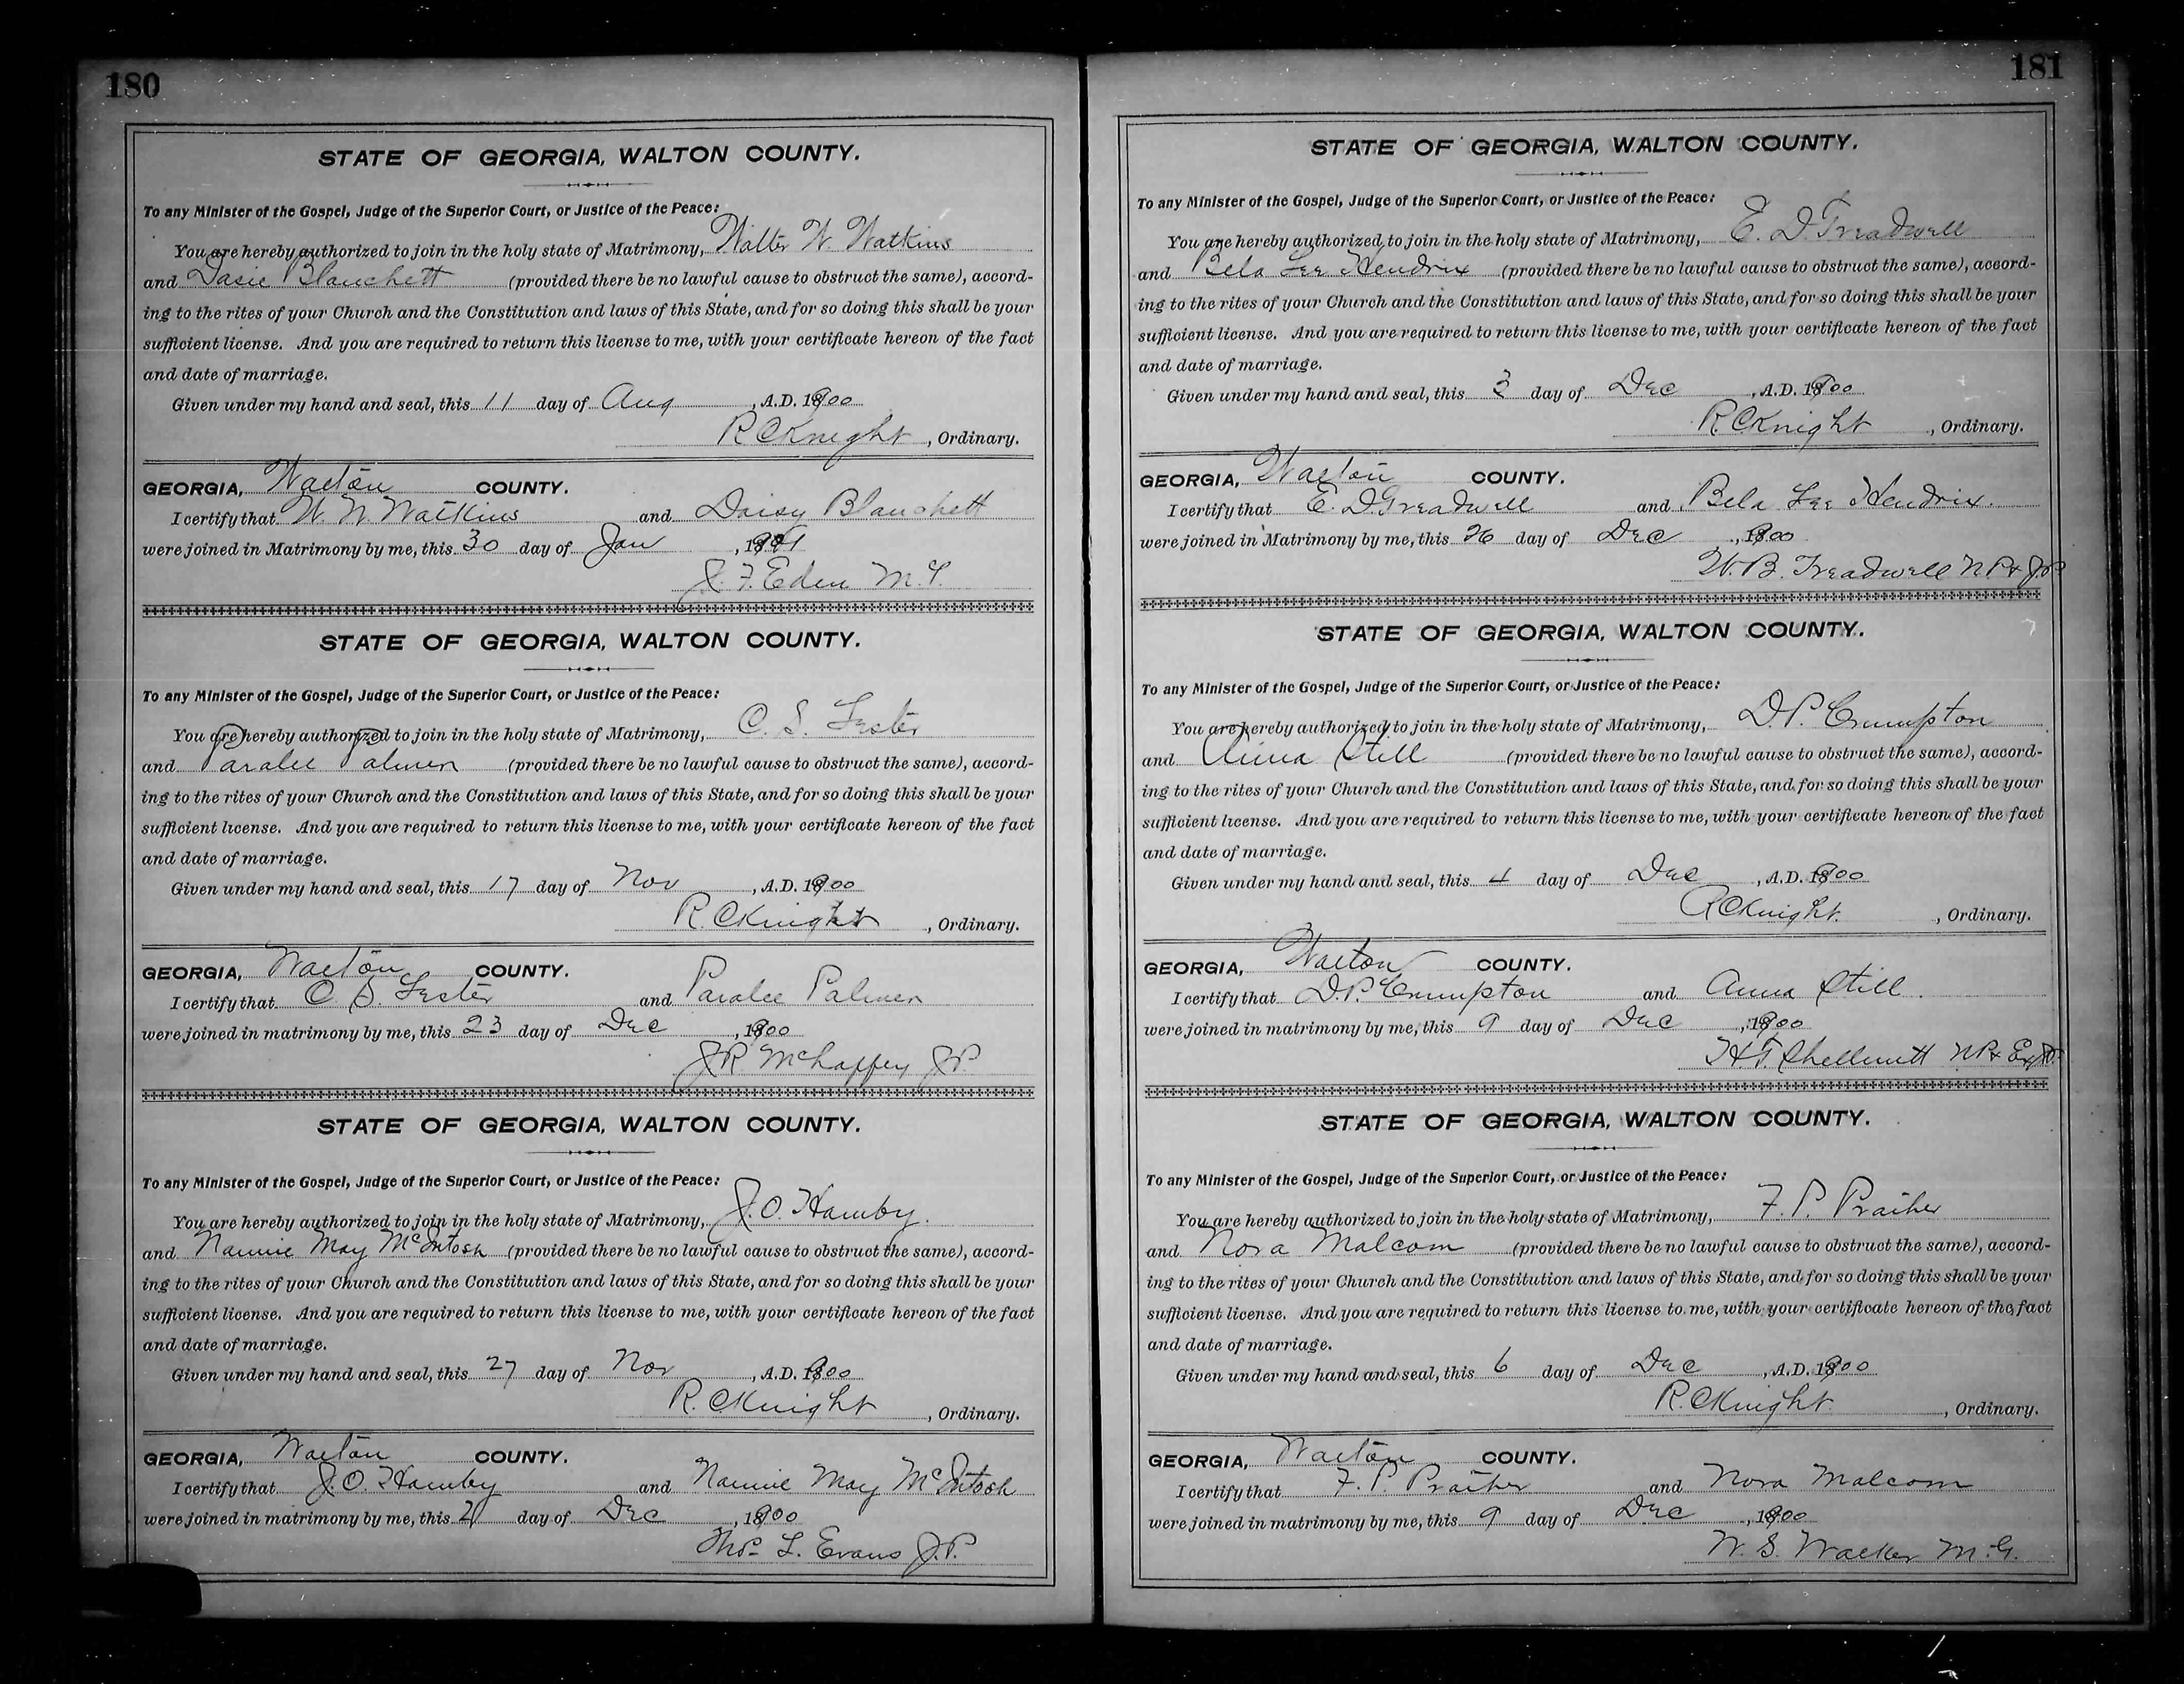 180
STATE OF GEORGIA, WALTON COUNTY.
To any Minister of the Gospel, Judge of the Superior Court, or Justice of the Peace:
You are hereby authorized to join in the holy state of Matrimony, Walter W. Watkins
and Dasie Blanchett (provided there be no lawful cause to obstruct the same), accord-
ing to the rites of your Church and the Constitution and laws of this State, and for so doing this shall be your
sufficient license. And you are required to return this license to me, with your certificate hereon of the fact
and date of marriage.
Given under my hand and seal, this 11 day of Aug , A.D. 1900
R C Knight , Ordinary.
GEORGIA, Walton COUNTY.
I certify that W. W. Watkins and Daisy Blanchett
were joined in Matrimony by me, this 30 day of Jan , 1901
J. F. Eden M. G.
STATE OF GEORGIA, WALTON COUNTY.
To any Minister of the Gospel, Judge of the Superior Court, or Justice of the Peace:
You are hereby authorized to join in the holy state of Matrimony, C. S. Lester
and Paralee Palmer (provided there be no lawful cause to obstruct the same), accord-
ing to the rites of your Church and the Constitution and laws of this State, and for so doing this shall be your
sufficient license. And you are required to return this license to me, with your certificate hereon of the fact
and date of marriage.
Given under my hand and seal, this 17 day of Nov , A.D. 1900
R. C Knight , Ordinary.
GEORGIA, Walton COUNTY.
I certify that C. S. Lester and Paralee Palmer
were joined in matrimony by me, this 23 day of Dec , 1900
J R. McHaffey J P.
STATE OF GEORGIA, WALTON COUNTY.
To any Minister of the Gospel, Judge of the Superior Court, or Justice of the Peace:
You are hereby authorized to join in the holy state of Matrimony, J. O. Hamby.
and Nannie May McIntosh (provided there be no lawful cause to obstruct the same), accord-
ing to the rites of your Church and the Constitution and laws of this State, and for so doing this shall be your
sufficient license. And you are required to return this license to me, with your certificate hereon of the fact
and date of marriage.
Given under my hand and seal, this 27 day of Nov , A.D. 1900
R. C Knight , Ordinary.
GEORGIA, Walton COUNTY.
I certify that J. O. Hamby and Nannie May McIntosh
were joined in matrimony by me, this 2 day of Dec , 1900
Thos. L. Evans J. P.
181
STATE OF GEORGIA, WALTON COUNTY.
To any Minister of the Gospel, Judge of the Superior Court, or Justice of the Peace:
You are hereby authorized to join in the holy state of Matrimony, E. D. Treadwell
and Bela Lee Hendrix (provided there be no lawful cause to obstruct the same), accord-
ing to the rites of your Church and the Constitution and laws of this State, and for so doing this shall be your
sufficient license. And you are required to return this license to me, with your certificate hereon of the fact
and date of marriage.
Given under my hand and seal, this 3 day of Dec , A.D. 1900
R C Knight , Ordinary.
GEORGIA, Walton COUNTY.
I certify that E. D. Treadwell and Bela Lee Hendrix.
were joined in Matrimony by me, this 26 day of Dec , 1900
W. B. Treadwell N P & J P
STATE OF GEORGIA, WALTON COUNTY.
To any Minister of the Gospel, Judge of the Superior Court, or Justice of the Peace:
You are hereby authorized to join in the holy state of Matrimony, D. P. Crumpton
and Anna Still (provided there be no lawful cause to obstruct the same), accord-
ing to the rites of your Church and the Constitution and laws of this State, and for so doing this shall be your
sufficient license. And you are required to return this license to me, with your certificate hereon of the fact
and date of marriage.
Given under my hand and seal, this 4 day of Dec , A.D. 1900
R C Knight. , Ordinary.
GEORGIA, Walton COUNTY.
I certify that D. P. Crumpton and Anna Still.
were joined in matrimony by me, this 9 day of Dec , 1900
H. T. Shellnutt N P & Ex
STATE OF GEORGIA, WALTON COUNTY.
To any Minister of the Gospel, Judge of the Superior Court, or Justice of the Peace:
You are hereby authorized to join in the holy state of Matrimony, F. P. Prather
and Nora Malcom (provided there be no lawful cause to obstruct the same), accord-
ing to the rites of your Church and the Constitution and laws of this State, and for so doing this shall be your
sufficient license. And you are required to return this license to me, with your certificate hereon of the fact
and date of marriage.
Given under my hand and seal, this 6 day of Dec , A.D. 1900
R. C Knight. , Ordinary.
GEORGIA, Walton COUNTY.
I certify that F. P. Prather and Nora Malcom
were joined in matrimony by me, this 9 day of Dec , 1900
W. S. Walker M. G.